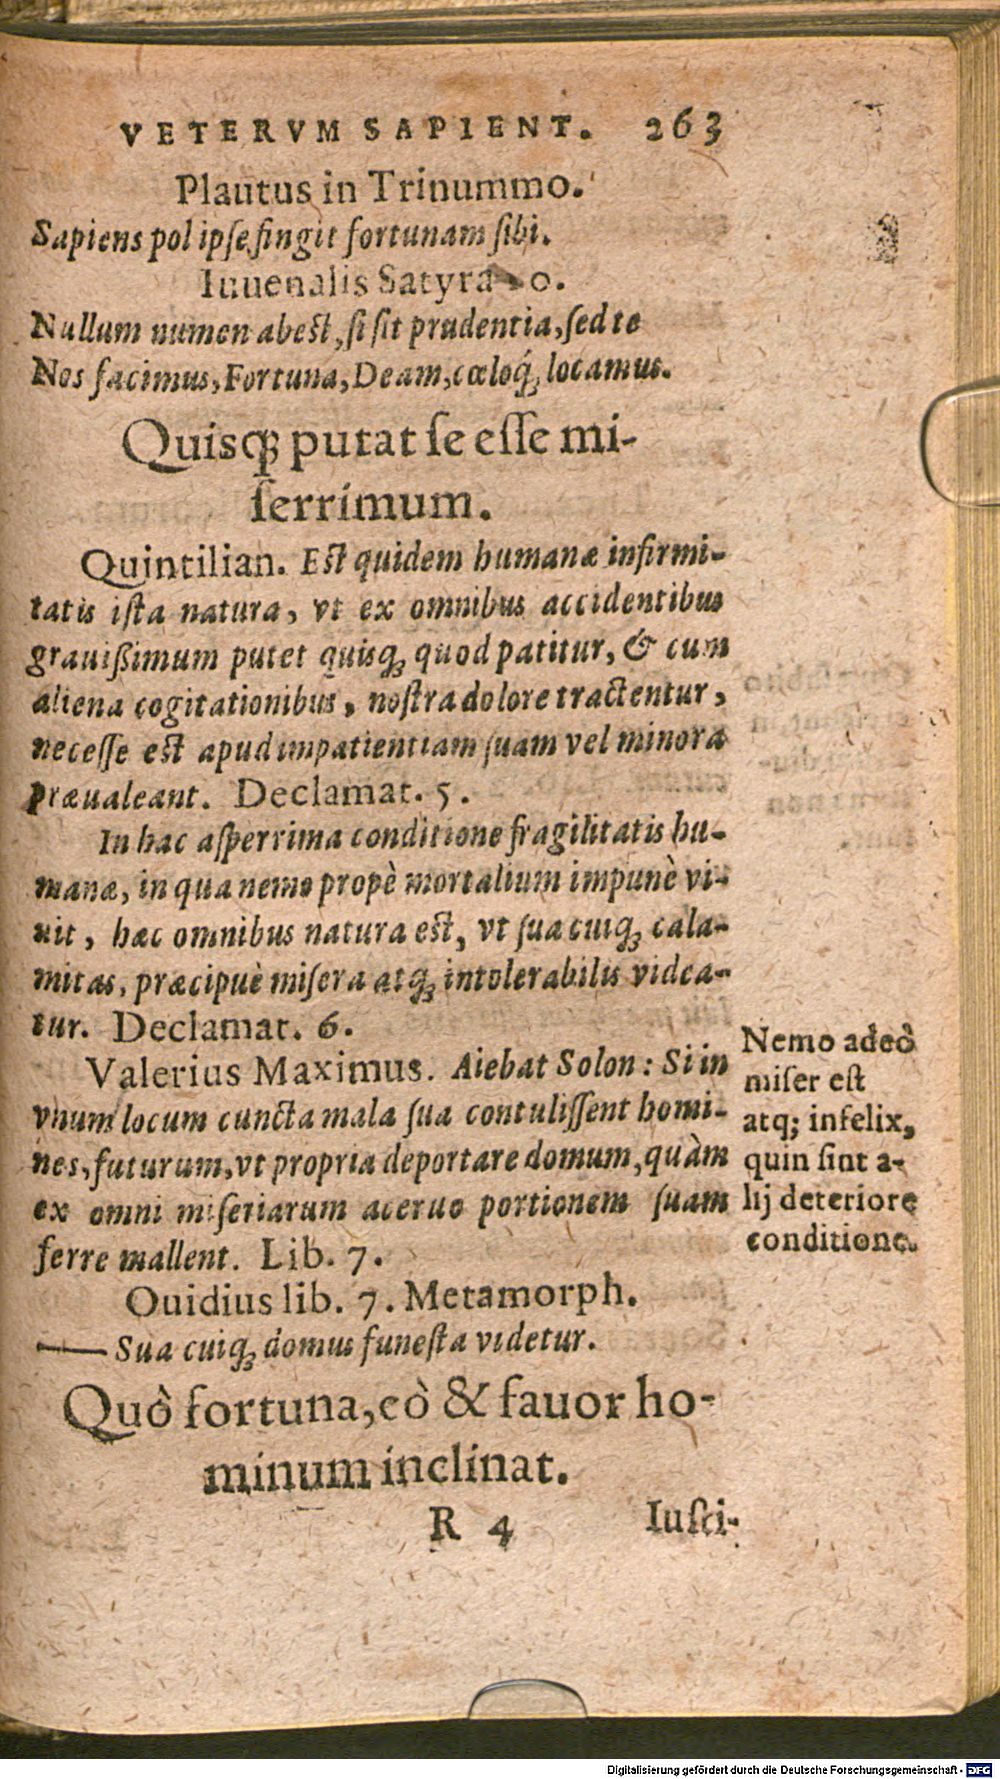 VETERVM SAPIENT. 263
Plautus in Trinummo.
Sapiens pol ipse fingit fortunam sibi.
Iuuenalis Satyra 10.
Nullum numen abest, si sit prudentia, sed te
Nos facimus, Fortuna, Deam, cœloq́; locamus.
Quisq; putat se esse mi-
serrimum.
Quintilian. Est quidem humanæ infirmi-
tatis ista natura, vt ex omnibus accidentibus
grauißimum putet quisq; quod patitur, & cum
aliena cogitationibus, nostra dolore tractentur,
necesse est apud impatientiam suam vel minora
præualeant. Declamat. 5.
In hac asperrima conditione fragilitatis hu-
manæ, in qua nemo propè mortalium impunè vi-
uit, hæc omnibus natura est, vt sua cuiq; cala-
mitas, præcipuè misera atq; intolerabilis videa-
tur. Declamat. 6.
Valerius Maximus. Aiebat Solon: Si in
vnum locum cuncta mala sua contulissent homi-
nes, futurum, vt propria deportare domum, quàm
ex omni miseriarum aceruo portionem suam
ferre mallent. Lib. 7.
Nemo adeò
miser est
atq; infelix,
quin sint a-
lij deteriore
conditione.
Ouidius lib. 7. Metamorph.
— Sua cuiq; domus funesta videtur.
Quò fortuna, eò & fauor ho-
minum inclinat.
R 4 Iusti-
Digitalisierung gefördert durch die Deutsche Forschungsgemeinschaft - DFG